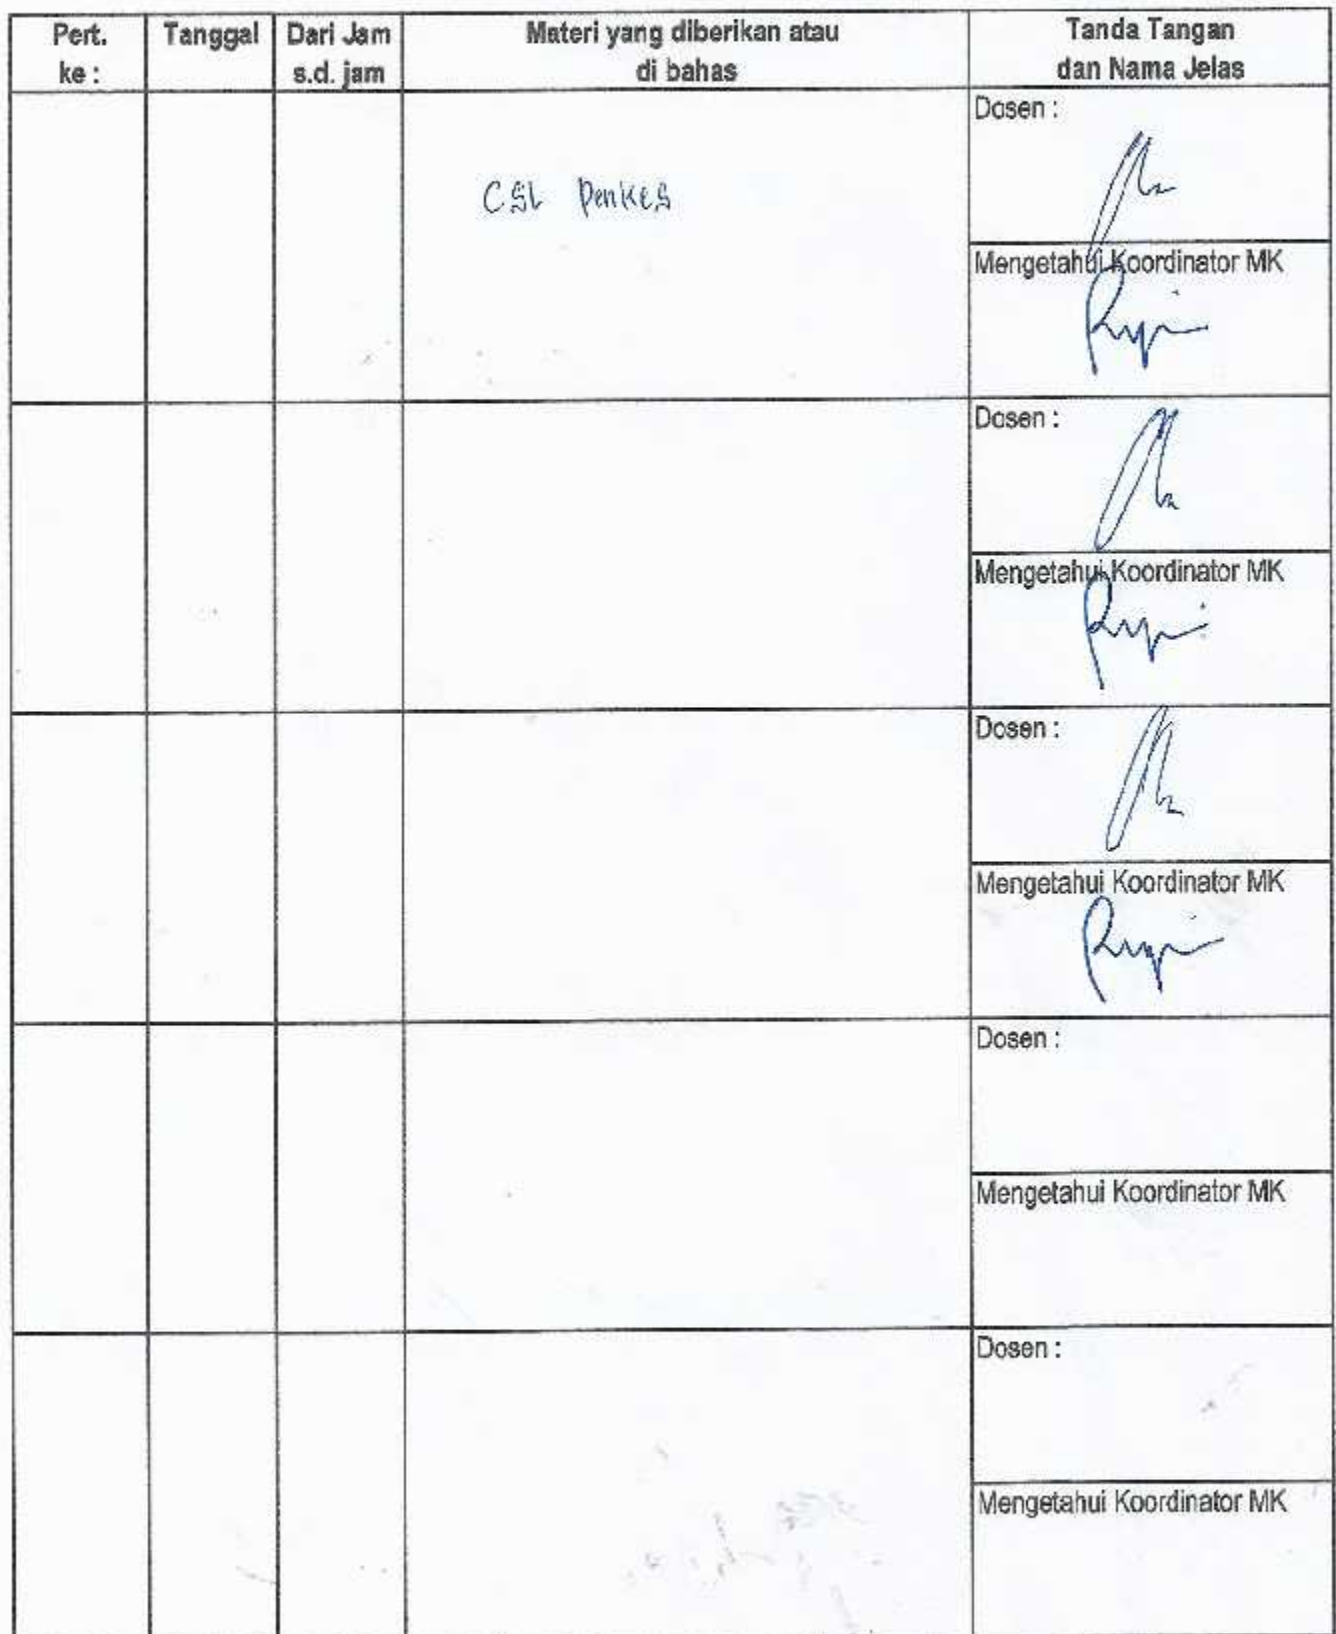 Pert. ke :
Tanggal
Dari Jam s.d. jam
Materi yang diberikan atau di bahas
Tanda Tangan dan Nama Jelas
CSL Penkes
Dosen :
Mengetahui Koordinator MK
Dosen :
Mengetahui Koordinator MK
Dosen :
Mengetahui Koordinator MK
Dosen :
Mengetahui Koordinator MK
Dosen :
Mengetahui Koordinator MK